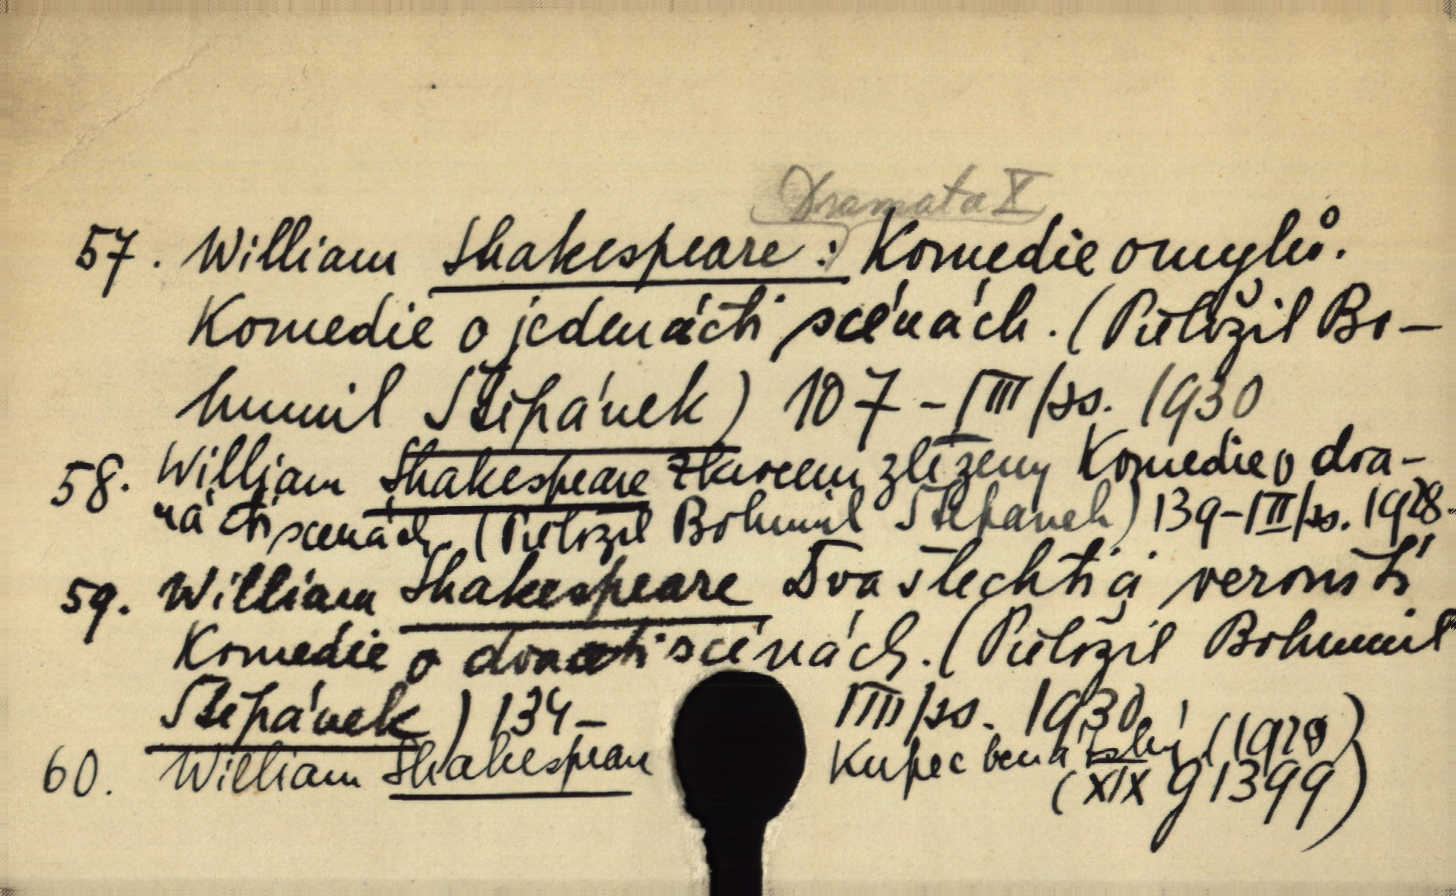 Dramata X
57. William Shakespeare: Komedie omylů.
Komedie o jedenácti scénách. (Přeložil Bo-
humil Štěpánek) 107 - [III]/ss. 1930
58. William Shakespeare Zkrocení zlé ženy Komedie o dva-
nácti scenách. (Přeložil Bohumil Štěpánek) 139-[II]/ss. 1928.
59. William Shakespeare Dva šlechtici veronští
Komedie o dvacti scénách. (Přeložil Bohumil
Štěpánek) 134- [III]/ss. 1930.
60. William Shakespeare Kupec benátský (1929)
(XIX g 1399)